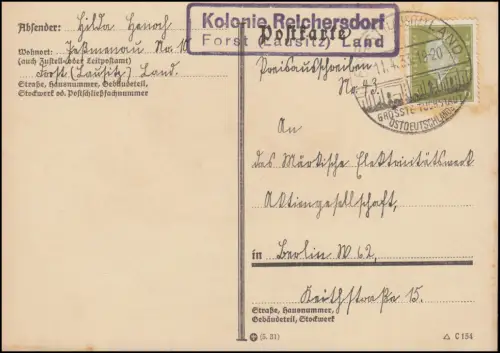 Kolonie Reichersdorf
Forst (Lausitz) Land
Postkarte
Absender: Hilda Henoch
Wohnort:
(auch Zustell- oder Leitpostamt)
Forst (Lausitz) Land.
Straße, Hausnummer, Gebäudeteil,
Stockwerk od. Postschließfachnummer
Preisausschreiben
LAND
11.4.33.18-20
GRÖSSTE
OSTDEUTSCHLANDS
An
das Märkische Elektrizitätswerk
Aktiengesellschaft,
in Berlin W 62,
Keithstraße 15.
Straße, Hausnummer,
Gebäudeteil, Stockwerk
(5. 31)
C 154